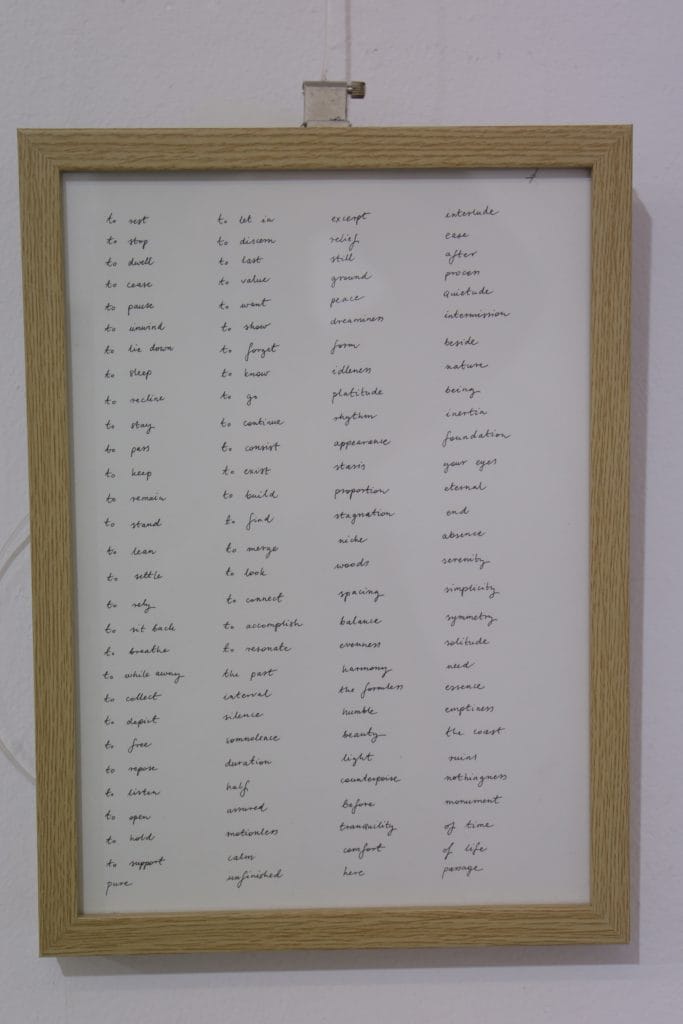 to rest
to stop
to dwell
to cease
to pause
to unwind
to lie down
to sleep
to recline
to stay
to pass
to keep
to remain
to stand
to lean
to settle
to rely
to sit back
to breathe
to while away
to collect
to depict
to free
to repose
to listen
to open
to hold
to support
pure
to let in
to discern
to last
to value
to want
to show
to forget
to know
to go
to continue
to consist
to exist
to build
to find
to merge
to look
to connect
to accomplish
to resonate
the past
interval
silence
somnolence
duration
half
assured
motionless
calm
unfinished
excerpt
relief
still
ground
peace
dreaminess
form
idleness
platitude
rhythm
appearance
stasis
proportion
stagnation
niche
woods
spacing
balance
evenness
harmony
the formless
humble
beauty
light
counterpoise
before
tranquility
comfort
here
interlude
ease
after
process
quietude
intermission
beside
nature
being
inertia
foundation
your eyes
eternal
end
absence
serenity
simplicity
symmetry
solitude
need
essence
emptiness
the coast
ruins
nothingness
monument
of time
of life
passage